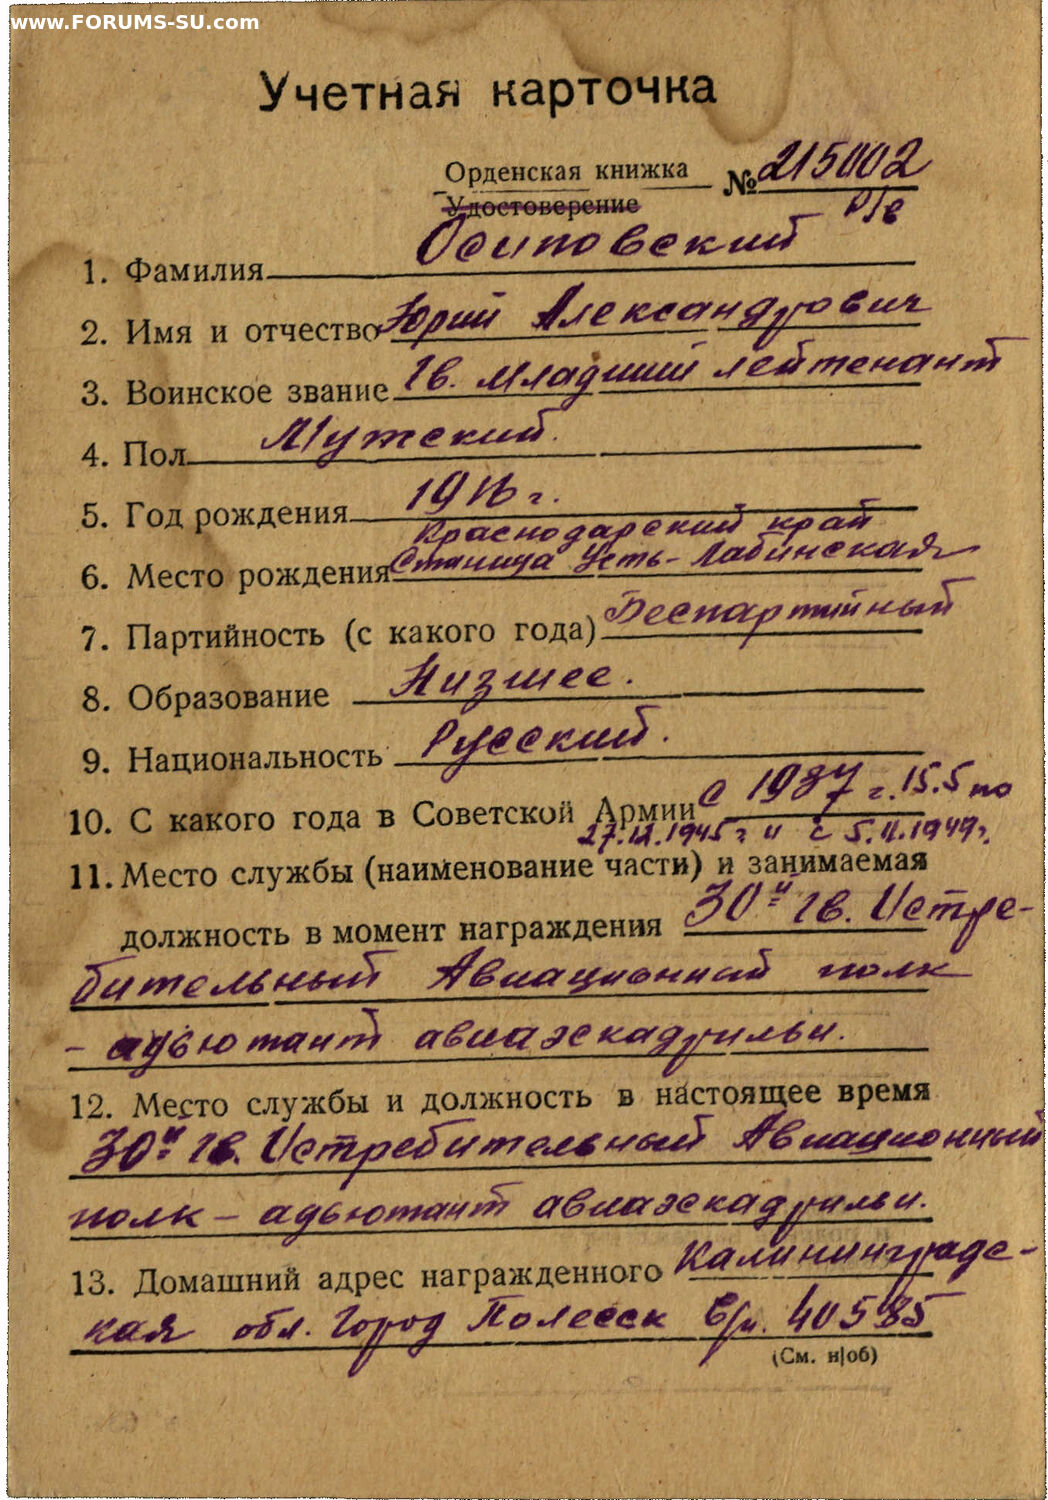 www.FORUMS-SU.com
Учетная карточка
Орденская книжка № 215002
Удостоверение
Осиповский
1. Фамилия
2. Имя и отчество Юрий Александрович
3. Воинское звание Гв. Младший лейтенант
4. Пол Мужский.
5. Год рождения 1916 г.
Краснодарский край
6. Место рождения Станица Усть-Лабинская
7. Партийность (с какого года) Беспартийный
8. Образование Низшее.
9. Национальность Русский.
10. С какого года в Советской Армии С 1937 г. 15.5 по
27.12.1945 г и с 5.11.1949г.
11. Место службы (наименование части) и занимаемая
должность в момент награждения 30й Гв. Истре-
бительный Авиационный полк
- адъютант авиаэскадрильи.
12. Место службы и должность в настоящее время
30й Гв. Истребительный Авиационный
полк - адъютант авиаэскадрильи.
13. Домашний адрес награжденного Калининградс-
кая обл. Город Полесск в/ч. 40585
(См. н|об)